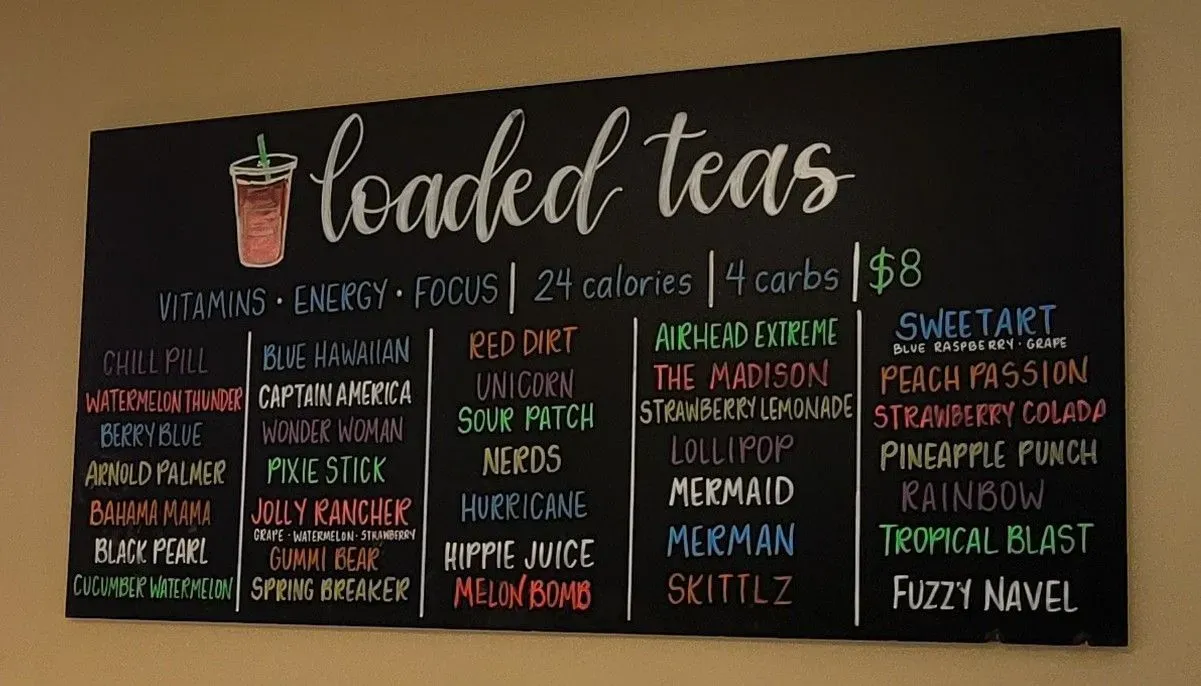 loaded teas
VITAMINS · ENERGY · FOCUS | 24 calories | 4 carbs | $8
CHILL PILL
WATERMELON THUNDER
BERRY BLUE
ARNOLD PALMER
BAHAMA MAMA
BLACK PEARL
CUCUMBER WATERMELON
BLUE HAWAIIAN
CAPTAIN AMERICA
WONDER WOMAN
PIXIE STICK
JOLLY RANCHER
GRAPE · WATERMELON · STRAWBERRY
GUMMI BEAR
SPRING BREAKER
RED DIRT
UNICORN
SOUR PATCH
NERDS
HURRICANE
HIPPIE JUICE
MELON BOMB
AIRHEAD EXTREME
THE MADISON
STRAWBERRY LEMONADE
LOLLIPOP
MERMAID
MERMAN
SKITTLZ
SWEETART
BLUE RASPBERRY · GRAPE
PEACH PASSION
STRAWBERRY COLADA
PINEAPPLE PUNCH
RAINBOW
TROPICAL BLAST
FUZZY NAVEL